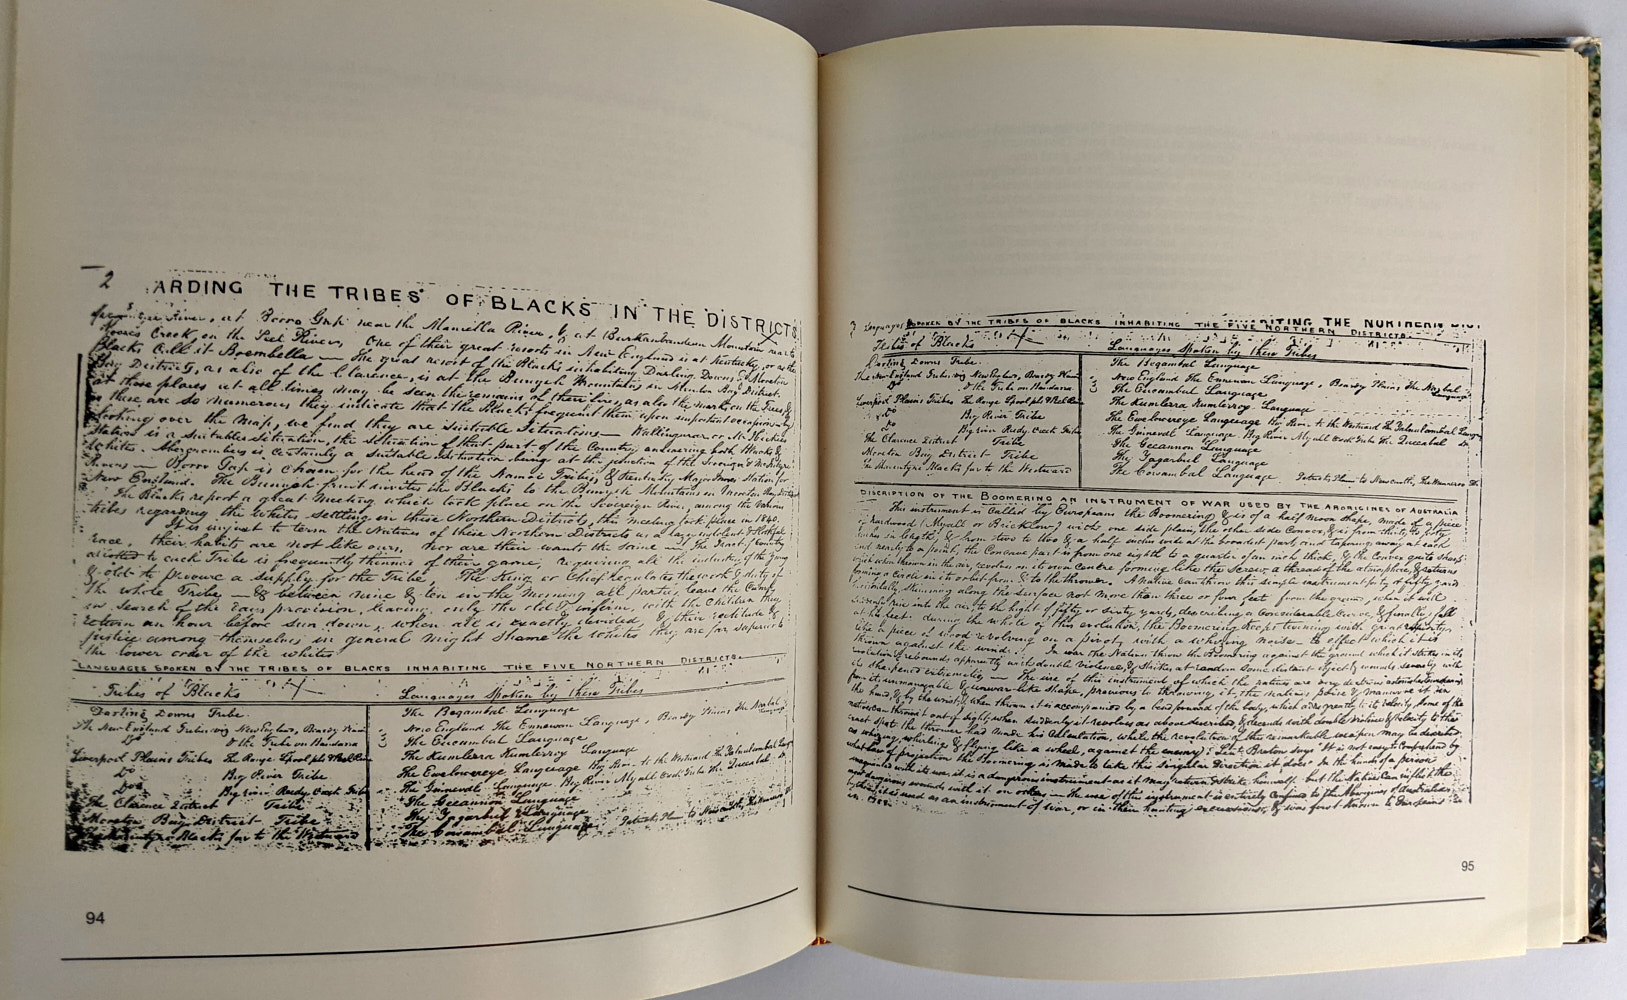 2 ARDING THE TRIBES OF BLACKS IN THE DISTRICTS
River, at Booroo Gap near the Manilla River, & at Burkanbandeen Mountain near to
Moores Creek on the Peel River. One of their great resorts in New England is at Kentucky, or as the
Blacks call it Boombella — The great resort of the Blacks inhabiting Darling Downs, & Moreton
Bay District, as also of the Clarence, is at the Bunyeh Mountains in Moreton Bay District.
at those places at all times may be seen the remains of their fires, as also the marks on the Trees, &
as these are so numerous they indicate that the Blacks frequent them upon important occasions, by
looking over the Map, we find they are suitable Situations —
Station is a suitable Situation, the situation of that part of the Country answering both Blacks &
Whites. is certainly a suitable situation being at the junction of the
Rivers — Booroo Gap is chosen for the head of the Tribes, & Kentucky Major Innes Station for
New England. The Bunyeh fruit invites the Blacks to the Bunyeh Mountains in Moreton Bay District
The Blacks report a great meeting which took place on the Rivers, among the various
tribes regarding the Whites settling in these Northern Districts, this meeting took place in 1840.
It is unjust to term the Natives of these Northern Districts as a lazy indolent &
race, their habits are not like ours, nor are their wants the same — The Tract of Country
allotted to each Tribe is frequently thinned of their game, requiring all the industry of the young
& old to procure a supply for the Tribe, The King or Chief regulates the work & duty of
the whole Tribe, — & between nine & ten in the morning all parties leave the Camp
in search of the days provision, leaving only the old & infirm, with the Children they
return an hour before sun down, when all is exactly divided, & their rectitude &
justice among themselves in general might shame the whites they are far superior to
the lower order of the whites
LANGUAGES SPOKEN BY THE TRIBES OF BLACKS INHABITING THE FIVE NORTHERN DISTRICTS.
Tribes of Blacks Languages Spoken by these Tribes
Darling Downs Tribe The Begambul Language
The New England Tribes viz New England, Beardy Plains New England The Ennewan Language, Beardy Plains The
Do & the Tribe on Mandana The Eucambul Language
Liverpool Plains Tribes The Range & Peel River The Kumlerroy Language
Do Big River Tribe The Ewolowereye Language Big River to the Westward
Do Big River Reedy Creek Tribe The Language Big River Myall Creek Tribe The
The Clarence District Tribe The Geeannon Language
Moreton Bay District Tribe The Yagarbul Language
Blacks far to the Westward The Cowambul Language
94
3 Languages SPOKEN BY THE TRIBES OF BLACKS INHABITING THE FIVE NORTHERN DISTRICTS.
Tribes of Blacks Languages Spoken by these Tribes
Darling Downs Tribe The Begambul Language
The New England Tribes viz New England, Beardy Plains New England The Ennewan Language, Beardy Plains The Language
Do & the Tribe on Mandana The Eucambul Language
Liverpool Plains Tribes The Range & Peel River The Kumlerra Kumlerroy Language
Do Big River Tribe The Ewolowereye Language Big River to the Westward
Do Big River Reedy Creek Tribe The Language Big River Myall Creek Tribe The
The Clarence District Tribe The Geeannon Language
Moreton Bay District Tribe The Yagarbul Language
Blacks far to the Westward The Cowambul Language
DISCRIPTION OF THE BOOMERING AN INSTRUMENT OF WAR USED BY THE ABORIGINES OF AUSTRALIA
This instrument is Called by Europeans the Boomering, & is of a half moon shape, made of a piece
of hardwood (Myall or Bricklow) with one side plain, the other side Convex, & is from thirty to forty
inches in length, & from two to two & a half inches wide at the broadest part, and tapering away at each
end nearly to a point, the Concave part is from one eighth to a quarter of an inch thick, & the Convex quite sharp
when thrown in the air, revolves on its own centre forming like the Screw, a thread of the atmosphere, & returns
forming a circle in its orbit from & to the thrower. A native can throw this simple instrument forty or fifty yards
horizontally skimming along the surface not more than three or four feet from the ground, when it will
suddenly rise into the air to the hight of fifty or sixty yards, describing a Considerable Curve, & finally fall
at his feet during the whole of this evolution, the Boomering keeps turning with great rapidity,
like a piece of wood revolving on a pivot, with a whizing noise — to effect which it is
thrown against the wind. In war the Natives throw the Boomering against the ground which it strikes in its
evolution, & rebounds apparently with double violence, & strikes at random some distant object, & wounds severely with
its sharpened extremities — The use of this instrument of which the natives are very dextrous
from its unmanagable & unwar-like shape, previous to throwing it, the natives poise & maneuvre it in
the hand, & by the wrist, when thrown it is accompanied by a bend forward of the body, which adds greatly to its velocity some of the
natives can throw it out of sight, when suddenly it revolves as above described & descends with double violence & velocity to the
exact spot the thrower had made his Calculation, while the revolution of this remarkable weapon may be described
as whizing, whirling & flying like a wheel, against the enemy; Lieut Breton says "It is not easy to comprehend by
what law of projection the Boomering is made to take this singular direction it does" In the hands of a person
unacquainted with its use it is a dangerous instrument as it may return & strike himself. but the Native Can inflict the
most dangerous wounds with it on others — the use of this instrument is entirely confined to the Aborigines of Australia
by whom it is used as an instrument of war, or in their hunting excursions, & was first known to Europeans
in 1788.
95